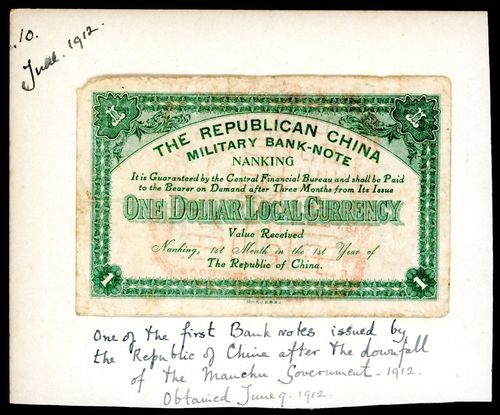 .10.
June. 1912.
$1
$1
THE REPUBLICAN CHINA
MILITARY BANK-NOTE
NANKING
It is Guaranteed by the Central Financial Bureau and shall be Paid
to the Bearer on Demand after Three Months from Its Issue
ONE DOLLAR LOCAL CURRENCY
Value Received
Nanking, 1st Month in the 1st Year of
The Republic of China.
1
1
One of the first Bank notes issued by
the Republic of China after the downfall
of the Manchu Government - 1912.
Obtained June 9. 1912.